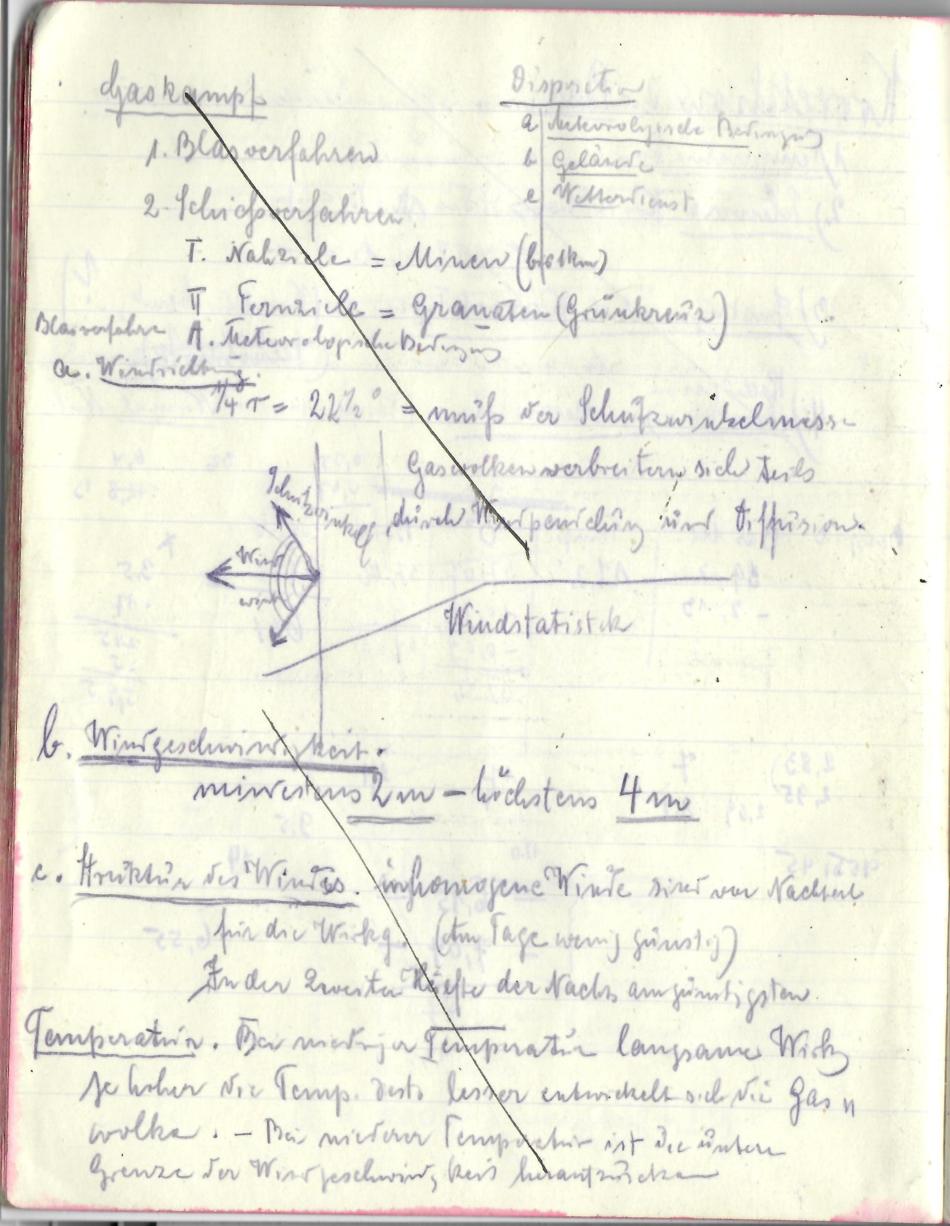 Gaskampf
Disposition
a Meteorologische Bedingung
b Gelände
c Wetterdienst
1. Blasverfahren
2. Schießverfahren
I. Nahziele = Minen (bis 1km)
II Fernziele = Granaten (Grünkreuz)
Blasverfahren A. Meteorologische Bedingung
a. Windrichtung.
= 22½° = muß der Schutzwinkel mess-
Gaswolken verbreiten sich teils
durch Windpendelung und Diffusion.
Schutzwinkel
Wind
Windstatistik
b. Windgeschwindigkeit.
mindestens 2m – höchstens 4m
c. Struktur des Windes. inhomogene Winde sind von Nachteil
für die Wirkg. (Am Tage wenig günstig)
In der zweiten Hälfte der Nachts am günstigsten.
Temperatur. Bei niedriger Temperatur langsame Wirkg
Je höher die Temp. desto besser entwickelt sich die Gas
wolke. – Bei niederer Temperatur ist die untere
Grenze der Windgeschwindigkeit heraufzurücken